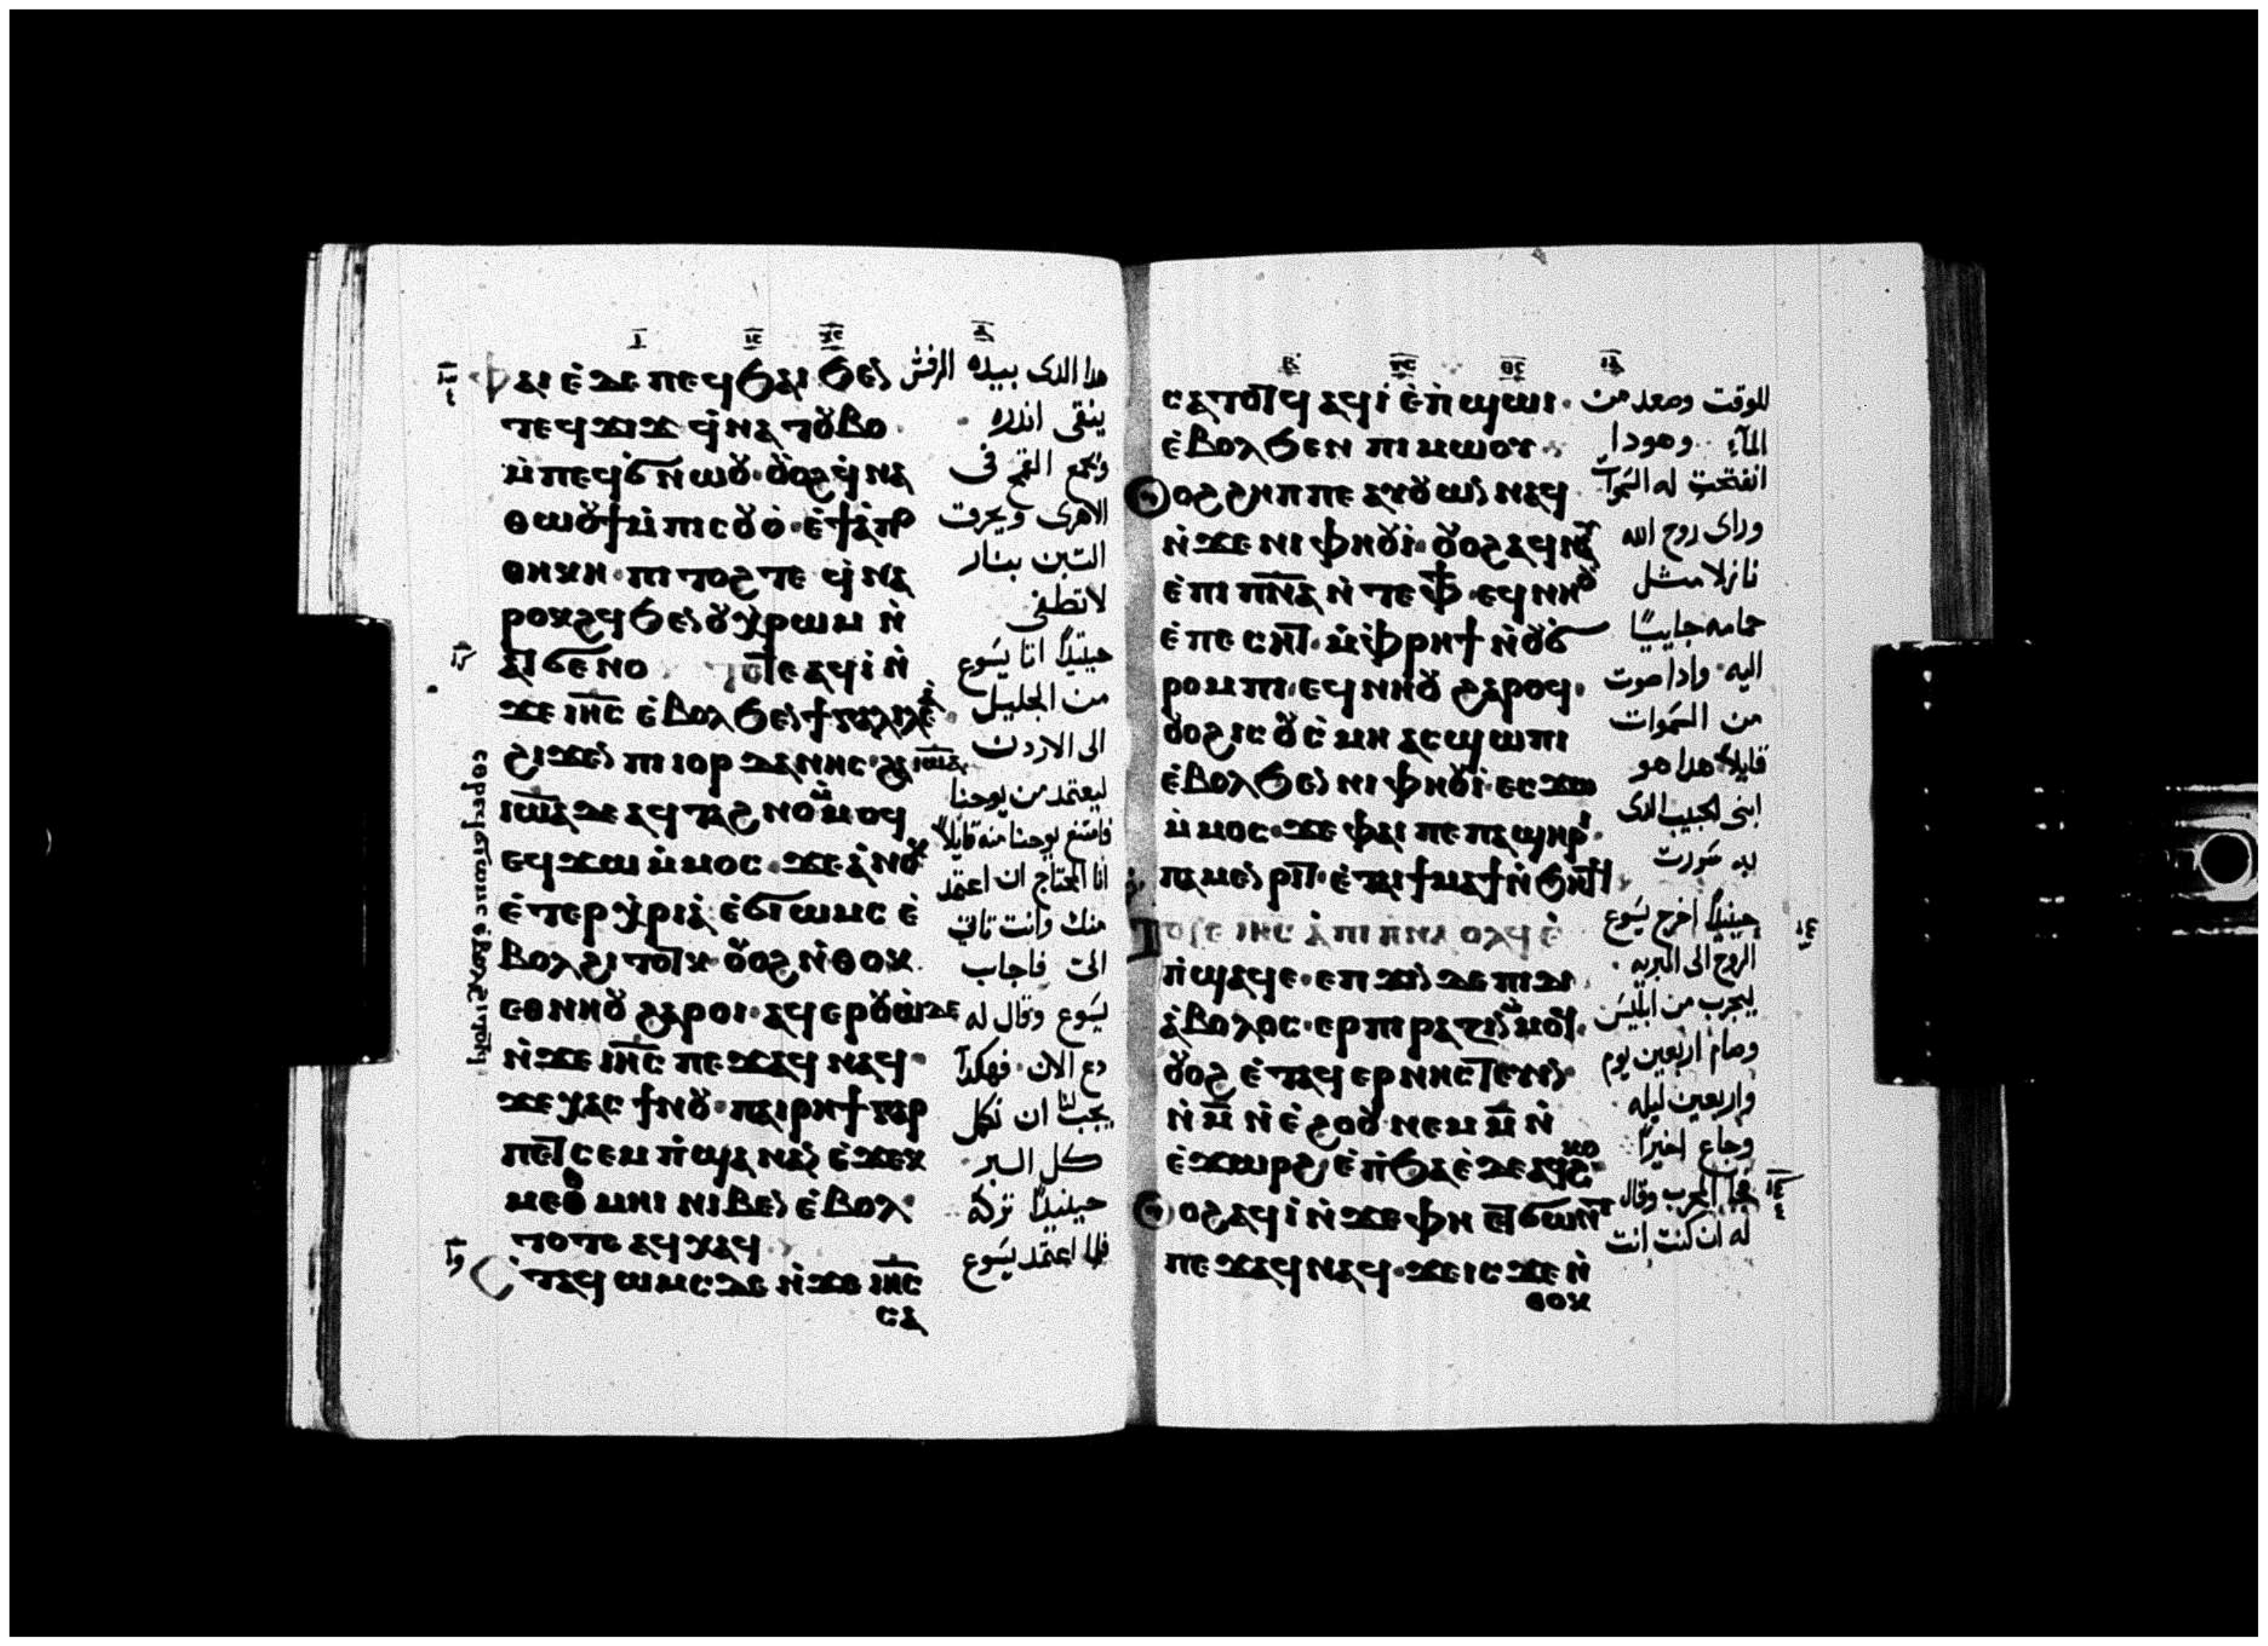 ⲫⲁⲓ ⲉ̀ⲇⲉ ⲡⲉϥϧⲁⲓ ϧⲉⲛ
ⲧⲉϥϫⲓϫ ϥ̀ⲛⲁⲧⲟⲩⲃⲟ
ⲙ̀ⲡⲉϥϭⲛⲱⲟⲩ· ⲟⲩⲟϩ ϥ̀ⲛⲁ
ⲑⲱⲟⲩϯ ⲙ̀ⲡⲓⲥⲟⲩⲟ̀· ⲉ̀ϯⲁ̀ⲡⲟ
ⲑⲏⲕⲏ· ⲡⲓⲧⲟϩ ⲧⲉ ϥ̀ⲛⲁ
ⲣⲟⲕϩϥ ϧⲉⲛ ⲟⲩⲭ̀ⲣⲱⲙ ⲛ̀
ⲁⲧϭⲉⲛⲟ ⲧⲟⲧⲉ ⲁϥⲓ̀ ⲛ̀
ϫⲉ ⲓⲏⲥ ⲉ̀ⲃⲟⲗ ϧⲉⲛ ϯⲅⲁⲗⲓⲗⲉⲁ̀
ϩⲓϫⲉⲛ ⲡⲓⲓⲟⲣⲇⲁⲛⲏⲥ· ϩⲁ ⲓⲱⲁ
ⲓⲱⲁ ⲇⲉ ⲁϥⲧⲁϩⲛⲟ ⲙ̀ⲙⲟϥ
ⲉϥϫⲱ ⲙ̀ⲙⲟⲥ· ϫⲉ ⲁ̀ⲛⲟⲕ
ⲉ̀ⲧⲉⲣⲭ̀ⲣⲓⲁ̀ ⲉ̀ϭⲓⲱⲙⲥ ⲉ̀
ⲃⲟⲗϩⲓⲧⲟⲧⲕ· ⲟⲩⲟϩ ⲛ̀ⲑⲟⲕ
ⲉⲑⲛⲏⲟⲩ ϩⲁⲣⲟⲓ· ⲁϥⲉⲣⲟⲩⲱ̀ ⲇⲉ
ⲛ̀ϫⲉ ⲓⲏⲥ ⲡⲉϫⲁϥ ⲛⲁϥ·
ϫⲉ ⲭⲁⲥ ϯⲛⲟⲩ· ⲡⲁⲓⲣⲏϯ ⲅⲁⲣ
ⲡⲉⲧⲥⲉⲙⲡ̀ϣⲁ ⲛⲁⲛ ⲉ̀ϫⲉⲕ
ⲙⲉⲑⲙⲏⲓ ⲛⲓⲃⲉⲛ ⲉ̀ⲃⲟⲗ·
ⲧⲟⲧⲉ ⲁϥⲭⲁϥ
ⲉⲧⲁϥϭⲱⲙⲥ ⲇⲉ ⲛ̀ϫⲉ ⲓⲏⲥ
ⲥⲁ
هدا الدى بيده الرفش
ينقى اندره
ويجمع القمح فى
الاهرى ويحرق
التبن بنار
لا تطفى
حينيدًا اتا يسوع
من الجليل
الى الاردن
ليعتمد من يوحنا
فامتنع يوحنا منه قايلاً
انا المحتاج ان اعتمد
منك وانت تاتى
الىّ فاجاب
يسوع وقال له
دع الان فهكدا
يجب لنا ان نكمل
كل البر
حينيدًا تركه
فلما اعتمد يسوع
ⲥⲁⲧⲟⲧϥ ⲁϥⲓ̀ ⲉ̀ⲡ̀ϣⲱⲓ·
ⲉ̀ⲃⲟⲗϧⲉⲛ ⲡⲓⲙⲱⲟⲩ
ⲟⲩⲟϩ ϩⲏⲡⲡⲉ ⲁⲩⲟⲩⲱⲛ ⲛⲁϥ
ⲛ̀ϫⲉ ⲛⲓⲫⲏⲟⲩⲓ̀· ⲟⲩⲟϩ ⲁϥⲛⲁⲩ
ⲉ̀ⲡⲓⲡⲛⲁ ⲛ̀ⲧⲉ ⲫϯ· ⲉϥⲛⲏⲟⲩ
ⲉ̀ⲡⲉⲥⲏⲧ· ⲙ̀ⲫ̀ⲣⲏϯ ⲛ̀ⲟⲩϭ
ⲣⲟⲙⲡⲓ· ⲉϥⲛⲏⲟⲩ ϩⲁⲣⲟϥ·
ⲟⲩⲟϩ ⲓⲥ ⲟⲩⲥ̀ⲙⲏ ⲁⲥϣⲱⲡⲓ
ⲉ̀ⲃⲟⲗϧⲉⲛ ⲛⲓⲫⲏⲟⲩⲓ̀· ⲉⲥϫⲱ
ⲙ̀ⲙⲟⲥ· ϫⲉ ⲫⲁⲓ ⲡⲉ ⲡⲁϣⲏⲣⲓ·
ⲡⲁⲙⲉⲛⲣⲓⲧ· ⲉ̀ⲧⲁⲓϯⲙⲁϯ ⲛ̀ϧⲏⲧϥ
ⲧⲟⲧⲉ ⲓⲏⲥ ⲁ̀ ⲡⲓⲡⲛⲁ ⲟⲗϥ ⲉ̀
ⲡ̀ϣⲁϥⲉ· ⲉⲡϫⲓⲛ ⲇⲉ ⲡⲓⲇⲓ
ⲁ̀ⲃⲟⲗⲟⲥ· ⲉⲣⲡⲓⲣⲁⲍⲓⲛ ⲙ̀ⲙⲟϥ·
ⲟⲩⲟϩ ⲉ̀ⲧⲁϥⲉⲣⲛⲏⲥⲧⲉⲩⲓⲛ
ⲛ̀ⲙ̅ ⲛ̀ⲉ̀ϩⲟⲟⲩ ⲛⲉⲙ ⲙ̅ ⲛ̀
ⲉ̀ϫⲱⲣϩ· ⲉ̀ⲡ̀ϧⲁⲉ̀ ⲇⲉ ⲁϥϩⲕⲟ·
ⲟⲩⲟϩ ⲁϥⲓ̀ ⲛ̀ϫⲉ ⲫⲏ ⲉⲧϭⲱⲛⲧ
ⲡⲉϫⲁϥ ⲛⲁϥ· ϫⲉ ⲓⲥϫⲉ ⲛ̀
ⲑⲟⲕ
للوقت وصعد من
المآء وهودا
انفتحت له السموات
وراى روح الله
نازلا مثل
حمامه جاييًا
اليه وادا صوت
من السموات
قايلاً هدا هو
ابنى الحبيب الدى
به سررت
حينيدًا اخرج يسوع
الروح الى البريه
ليجرب من ابليس
وصام اربعين يوم
واربعين ليله
وجاع اخيرًا
فجا المجرب وقال
له ان كنت انت